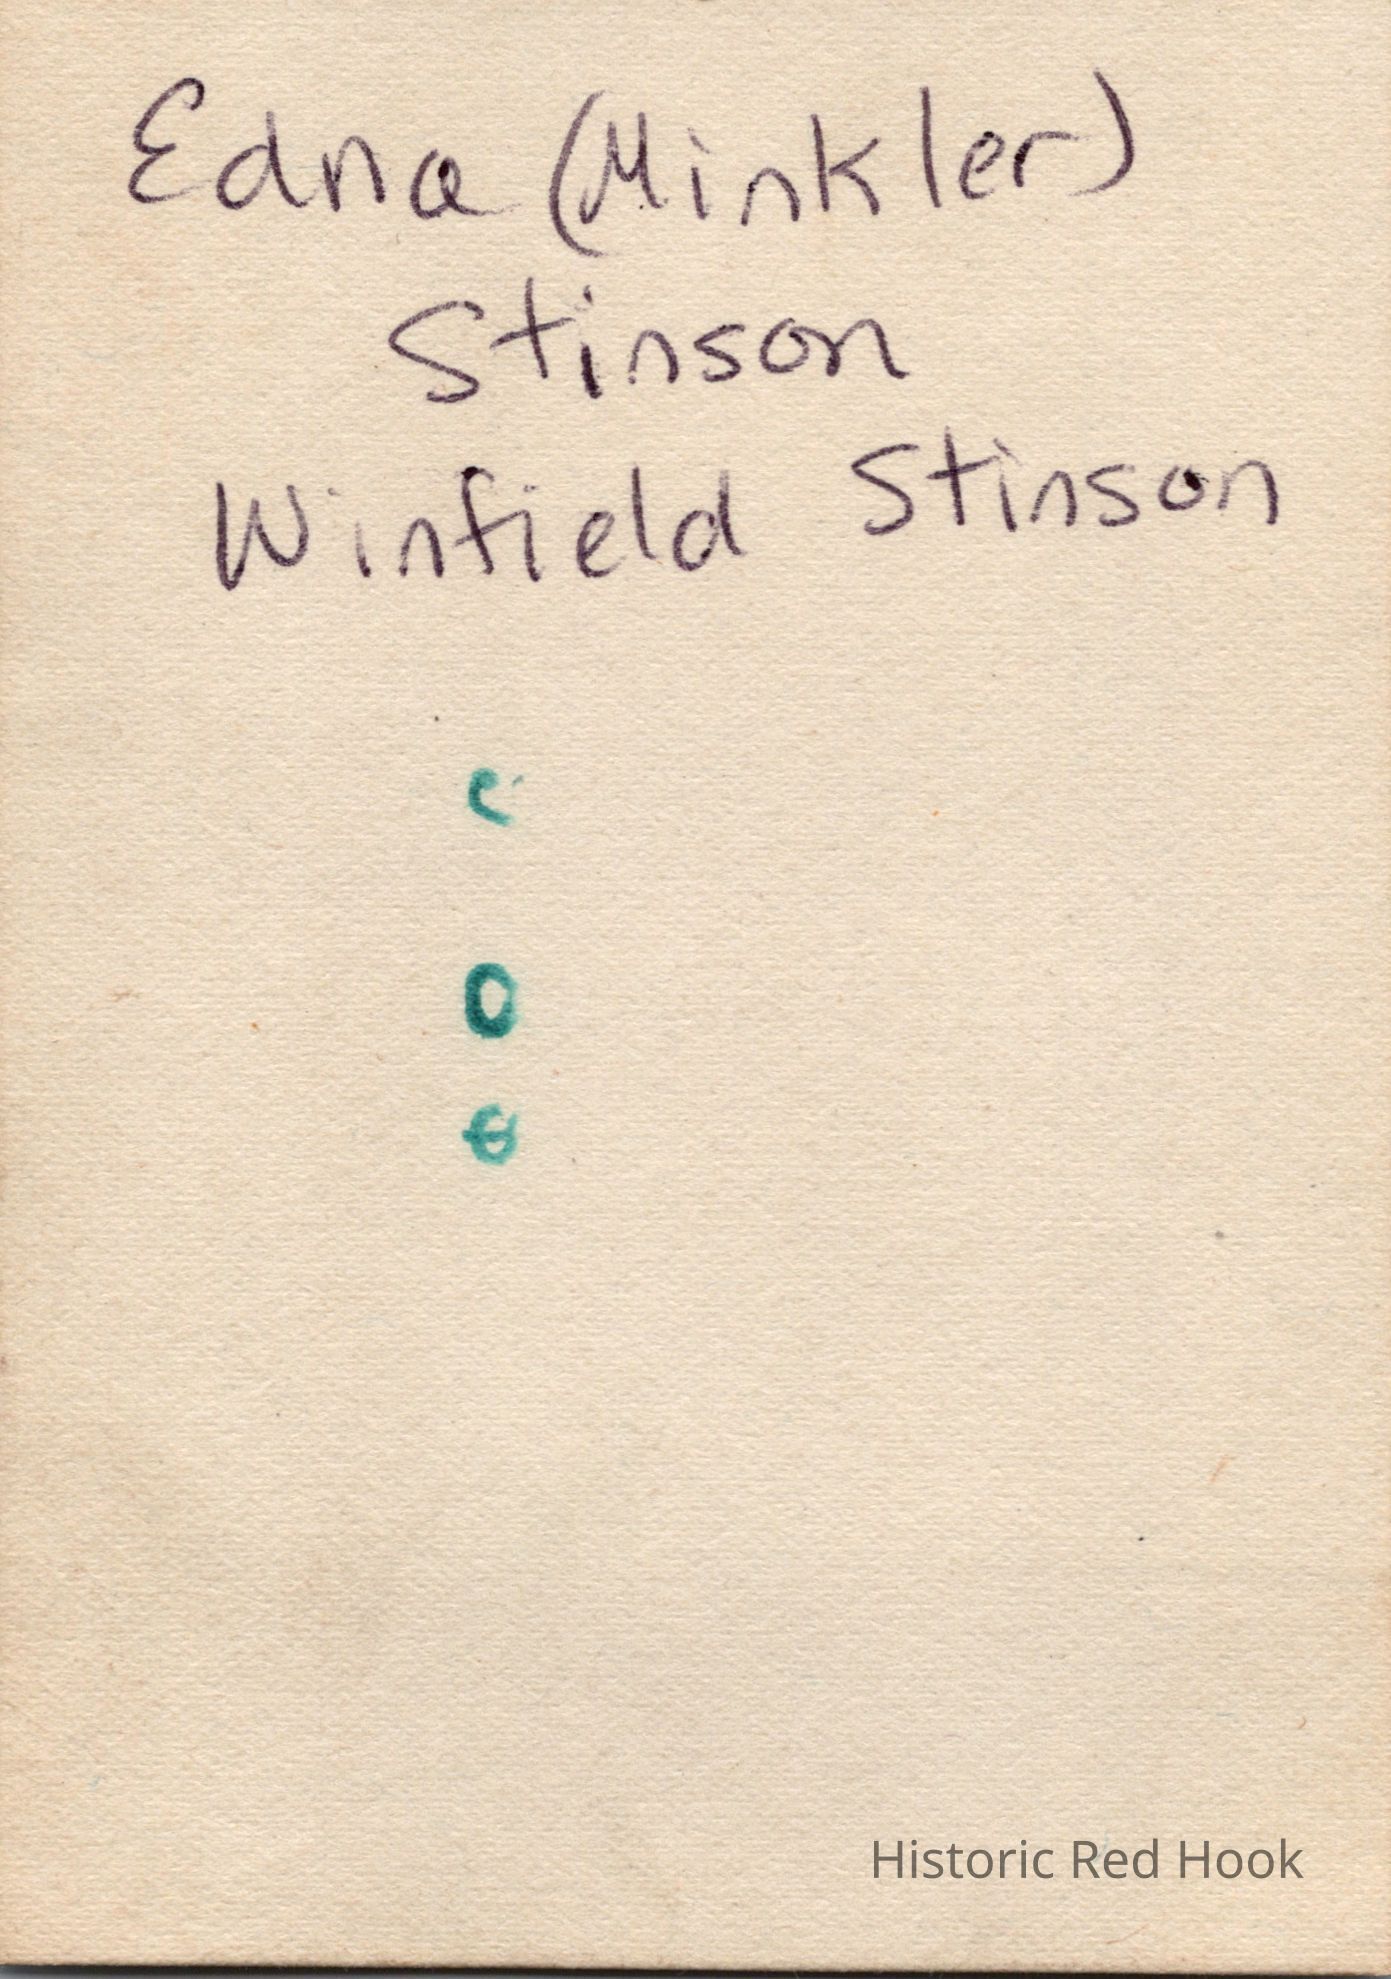 Edna (Minkler)
Stinson
Winfield Stinson
Historic Red Hook